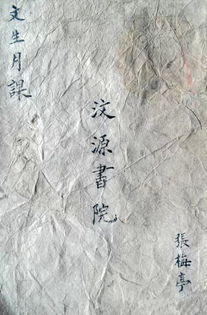 張梅亭
汶源書院
文生月課